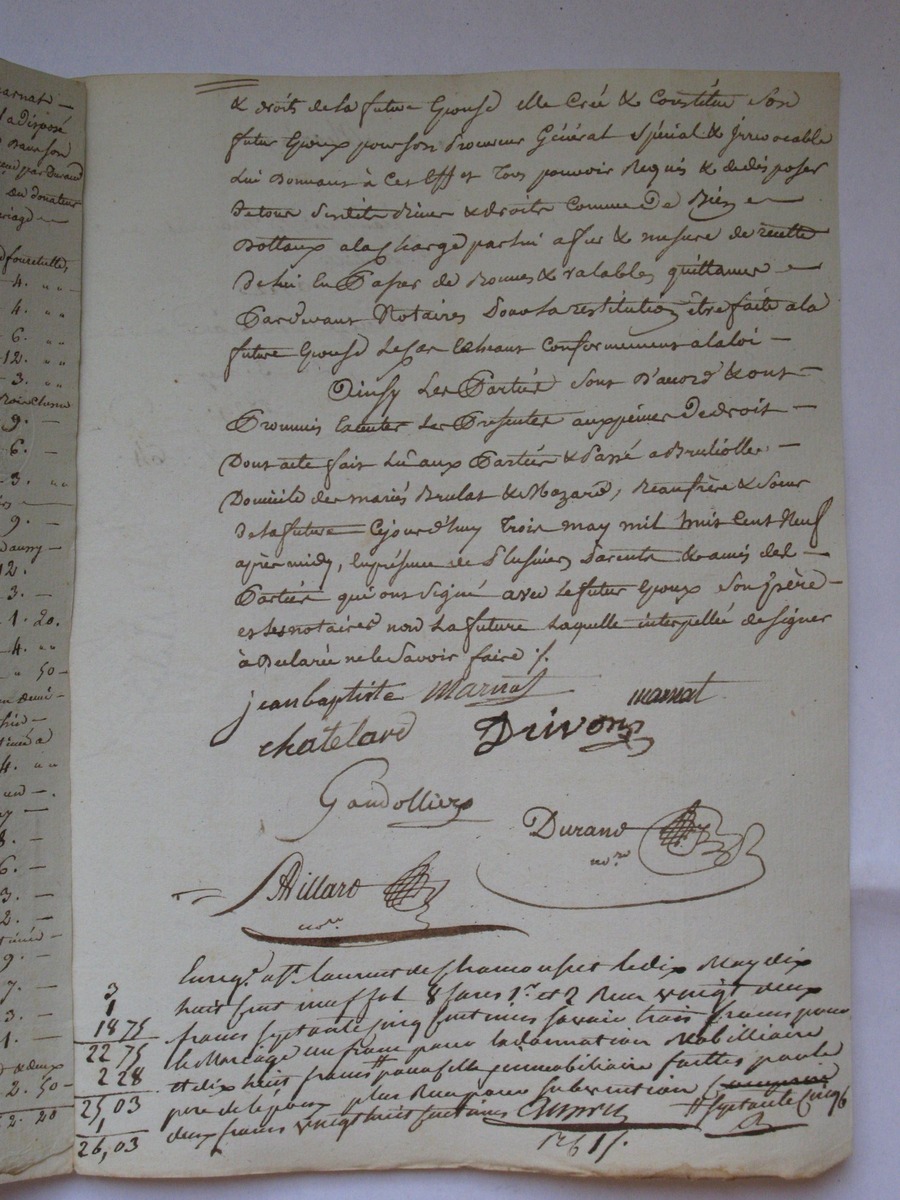 & droits de la future Epouse elle Crée & Constitue Son
futur Epoux pour son Procureur Général Spécial & Irrévocable
Lui Donnant à Cet Effet Tous pouvoir Requis & de disposer
de tous Sesdits Biens & droits Comme De Biens
Dottaux a la Charge par lui a fur & mesure de recette
De lui En Passer de Bonnes & valables quittances
Pardevant Notaires Pour La restitution être faite a la
future Epouse Le Cas Echeant Conformement a la loi
Ainsy Les Parties Sont D'acord & ont
Prommis Les Presentes aux peines De droit
Dont acte fait Lû aux Parties & Passé a Brullioles
Domicile des mariés Brulas & Mazard, Beaufrère & Soeur
De la future Cejourd'huy Trois may mil huit Cent Neuf
après midy, En présence de Plusieurs Parents & amis des
Parties qui ont Signé avec Le futur Epoux Son Père
et Les notaires non La future Laquelle interpellée de signer
à Declaré ne le Savoir faire ./.
jean baptiste Marnat marnat
chatelard Drivon
Gandollier
Durand
no.re
Aillard
no.re
Enreg. a St. Laurent de Chamousset le dix May dix
3 huit Cent neuf fol 8 1.er et 2 Reçu vingt deux
1 francs Septante Cinq Centimes Savoir trois francs pour
18 75 le Mariage un franc pour la donnation Mobilliaire
22 75 et dix huit francs pour celle immobiliaire faittes par le
2 28 pere de l'époux plus Reçu pour Subvention
25,03 deux francs vingt huit Centimes Septante Cinq
1
26,03
arnat
a disposé
par Durand
Du donateur
riage
4. " "
4. " "
6. " "
12. " "
3. " "
9. —
6. —
3. " "
9. —
12.
3. —
1. 20.
4. "
" 50 —
4. " "
8. —
6. —
3. —
2. —
9. —
7. —
3. —
1. —
& deux
2. 50 —
2. 20